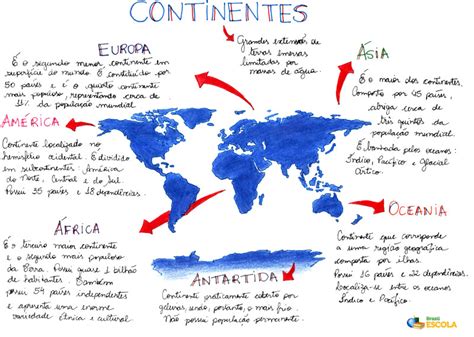 CONTINENTES
Grandes extensões de
terras imersas
limitadas por
massas de água.
EUROPA
É o segundo menor continente em
superfície do mundo. É constituído por
50 países e é o quarto continente
mais populoso, representando cerca de
11% da população mundial.
ÁSIA
É o maior dos continentes.
Composto por 45 países,
abriga cerca de
três quintos da
população mundial.
É banhada pelos oceanos:
Índico, Pacífico e Glacial
Ártico.
AMÉRICA
Continente localizado no
hemisfério ocidental. É dividido
em subcontinentes: América
do Norte, Central e do Sul.
Possui 35 países e 18 dependências.
OCEANIA
Continente que corresponde
a uma região geográfica
composta por ilhas.
Possui 16 países e 22 dependências.
Localiza-se entre os oceanos
Índico e Pacífico.
ÁFRICA
É o terceiro maior continente
e o segundo mais populoso
da Terra. Possui quase 1 bilhão
de habitantes. Também
possui 54 países independentes
e apresenta uma enorme
variedade étnica e cultural.
ANTARTIDA
Continente praticamente coberto por
geleiras, sendo, portanto, o mais frio.
Não possui população permanente.
Brasil
ESCOLA